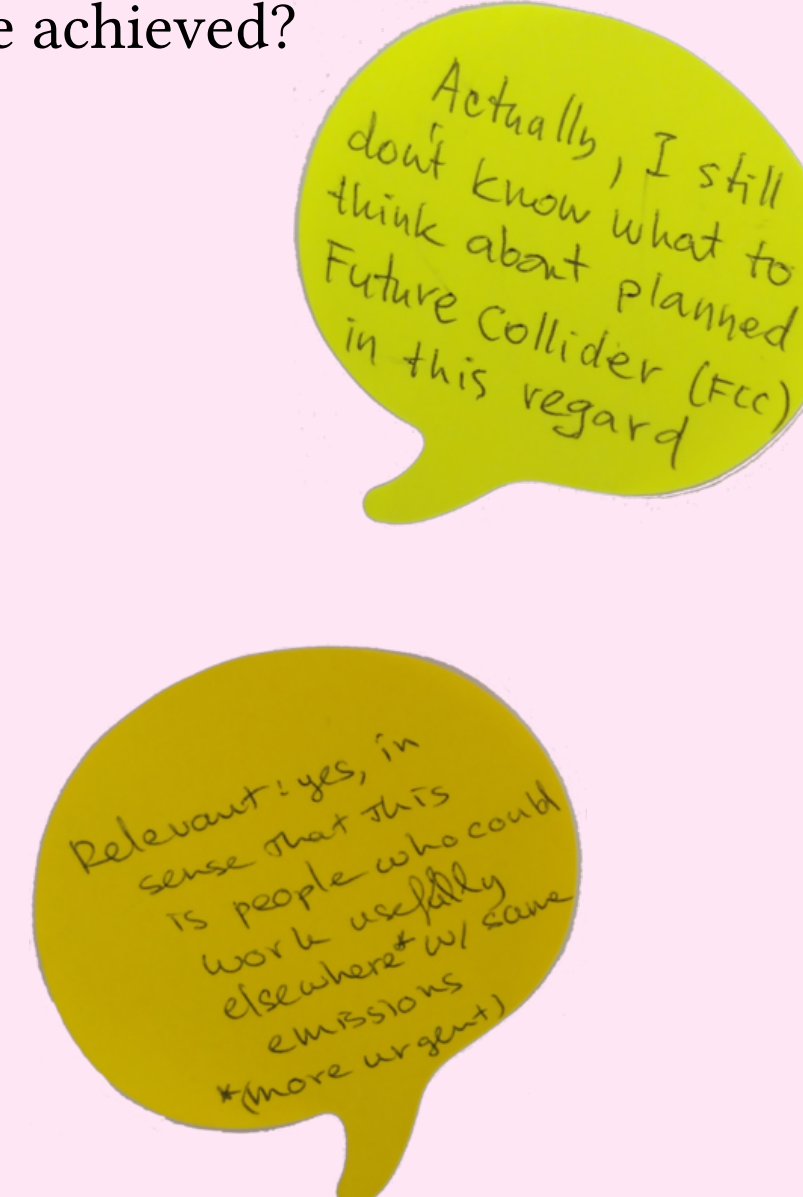 e achieved?
Actually, I still
don't know what to
think about planned
Future Collider (FCC)
in this regard
Relevant: yes, in
sense that this
is people who could
work usefully
elsewhere* w/ same
emissions
*(more urgent)